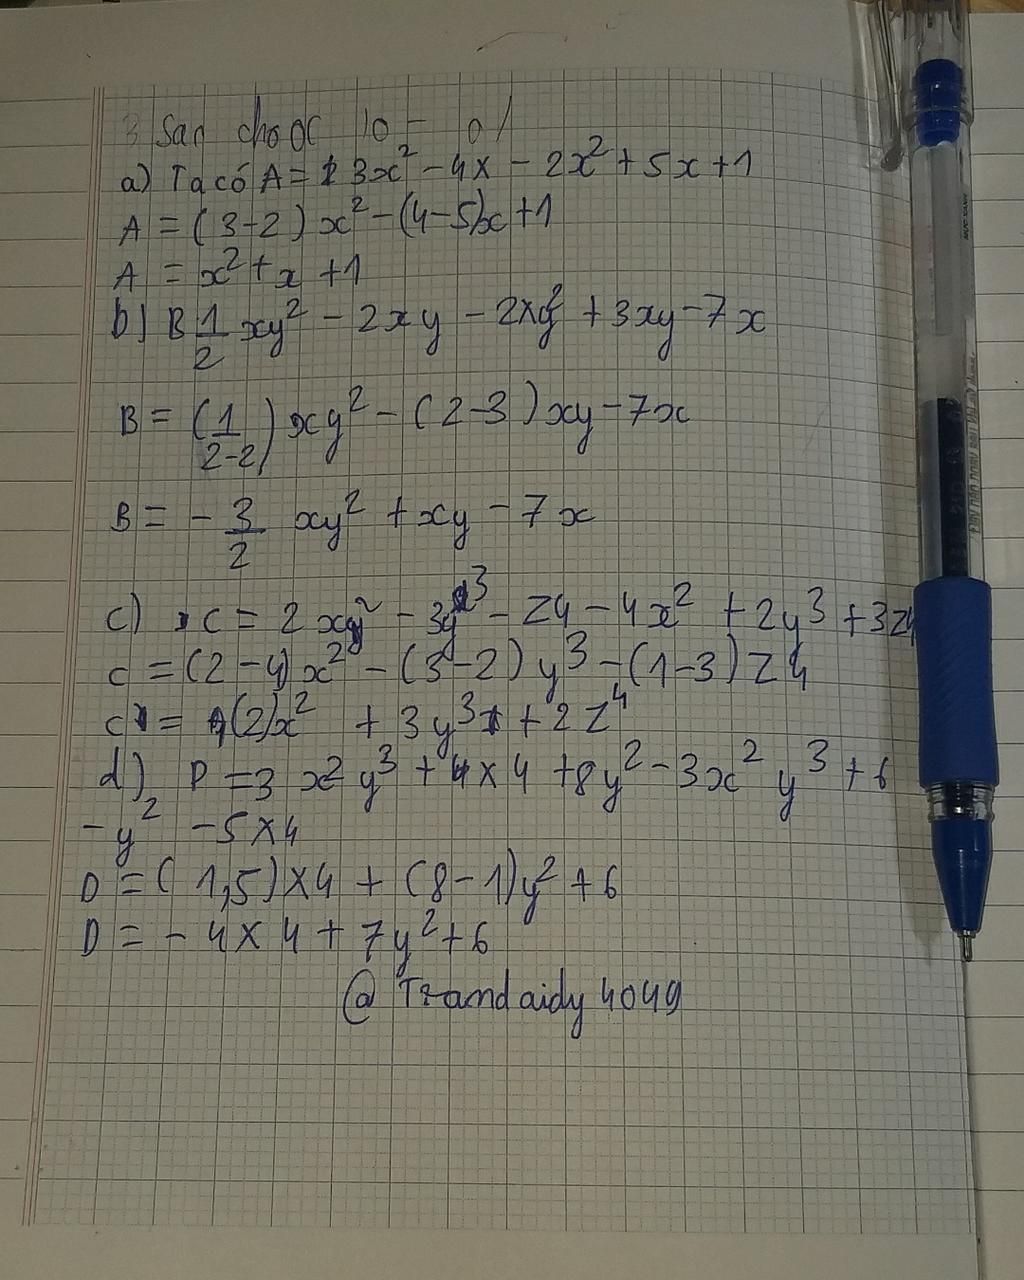 a) Ta có A = 3x² - 4x - 2x² + 5x + 1
A = (3-2)x² - (4-5)x + 1
A = x² + x + 1
b) B 1/2 xy² - 2xy - 2xy² + 3xy - 7x
B = (1/2-2) xy² - (2-3)xy - 7x
B = - 3/2 xy² + xy - 7x
c) C = 2x² - 3y³ - Z4 - 4x² + 2y³ + 3Z4
C = (2-4)x² - (3-2)y³ - (1-3)Z4
C = (2)x² + 3y³ + 2Z⁴
d) D = 3x²y³ + 4x4 + 8y² - 3x²y³ + 6
-y² - 5x4
D = (1,5)x4 + (8-1)y² + 6
D = -4x4 + 7y² + 6
@Trandaidy4049